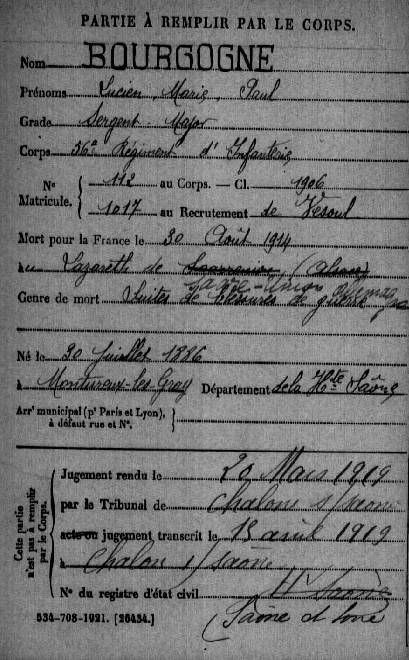 PARTIE À REMPLIR PAR LE CORPS.
Nom BOURGOGNE
Prénoms Lucien Marie Paul
Grade Sergent Major
Corps 56e Régiment d'Infanterie
N° Matricule. { 112 au Corps. — Cl. 1906
1017 au Recrutement de Vesoul
Mort pour la France le 30 Août 1914
à Lazareth de (Alsace)
Sarre-Union
Genre de mort Suites de blessures de guerre
Né le 20 Juillet 1886
à Montureux-les-Gray Département de la Hte Saône
Arrt municipal (pr Paris et Lyon), à défaut rue et N°. }
Cette partie n'est pas à remplir par le Corps.
Jugement rendu le 20 Mars 1919
par le Tribunal de Chalon s/saone
acte ou jugement transcrit le 18 avril 1919
à Chalon s/saone
N° du registre d'état civil Hte Saône
Saône et Loire
534-708-1921. [26434.]